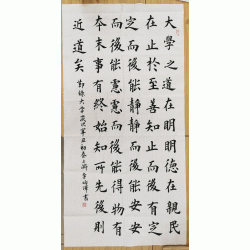 大學之道在明明德在親民
在止於至善知止而後有定
定而後能靜靜而後能安安
而後能慮慮而後能得物有
本末事有終始知所先後則
近道矣
節錄大學歲次辛丑初春
書